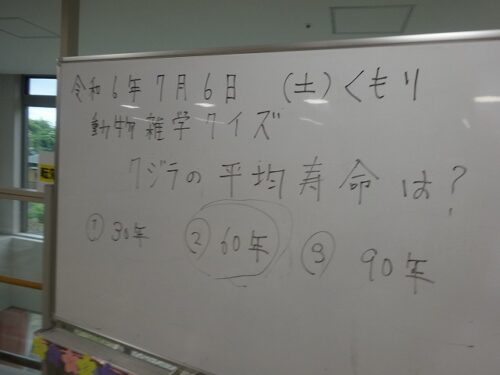 令和6年7月6日 (土)くもり
動物雑学クイズ
クジラの平均寿命は?
① 30年 ② 60年 ③ 90年